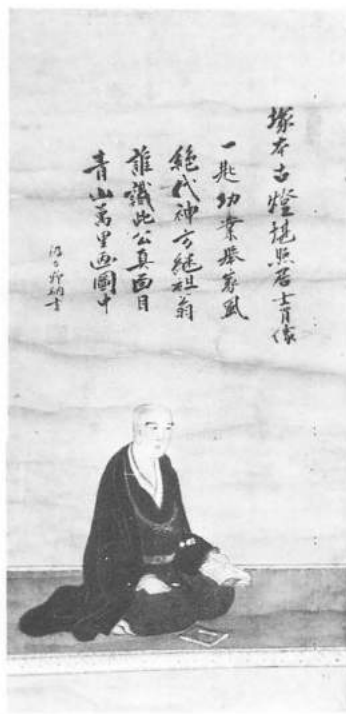 塚本古燈堪照居士肖像
一匙功業振家風
絶代神方継祖翁
誰識此公真面目
青山萬里画圖中